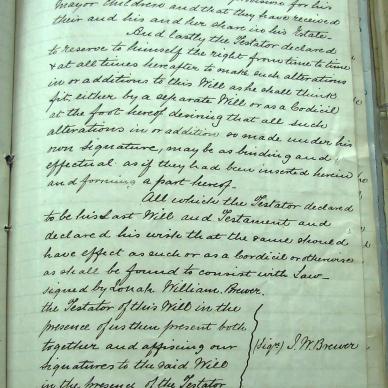 Mayor children and that they have received
their and his and her share in his Estate
And lastly the Testator declared
to reserve to himself the right from time to time
& at all times hereafter to make such alterations
in or additions to this Will as he shall think
fit, either by a separate Will or as a Codicil
at the foot hereof desiring that all such
alterations in or addition so made under his
own signature, may be as binding and
effectual as if they had been inserted herein
and forming a part hereof.
All which the Testator declared
to be his Last Will and Testament and
declared his wish that the same should
have effect as such or as a Cordicil or otherwise
as shall be found to consist with Law
signed by Lonah William Brewer.
the Testator of this Will in the
presence of us then present both
together and affixing our
signatures to the said Will
in the presence of the Testator
(Sigd) J. W. Brewer